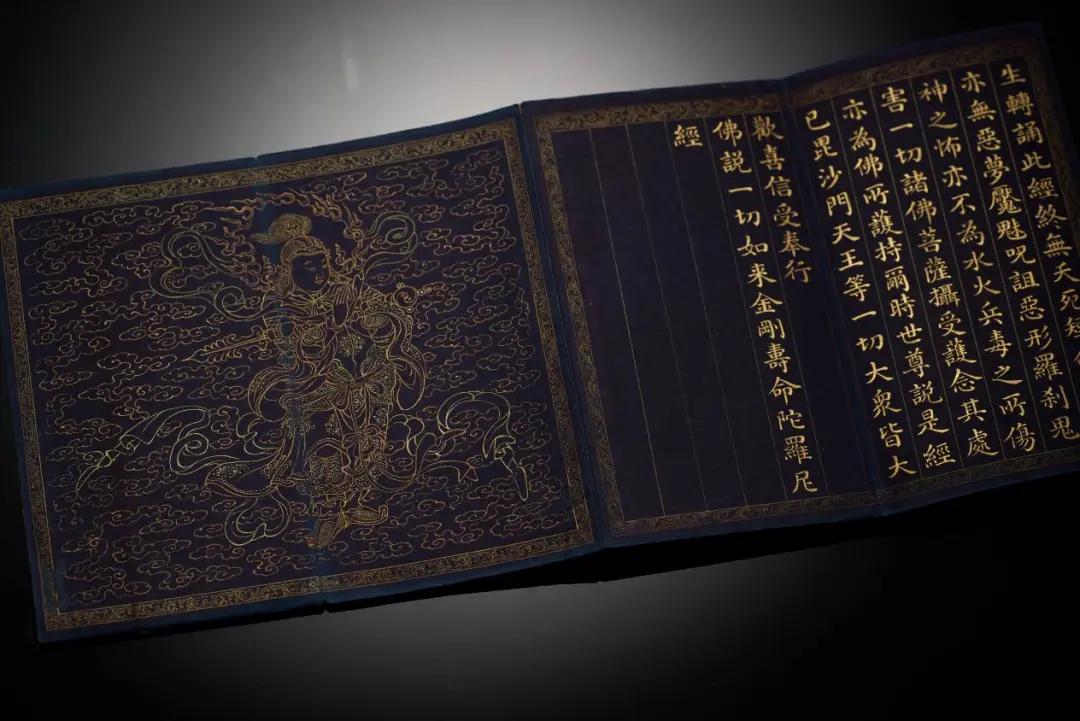 生轉誦此經終無夭死
亦無惡夢魘魅呪詛惡形羅刹鬼
神之怖亦不為水火兵毒之所傷
害一切諸佛菩薩攝受護念其處
亦為佛所護持爾時世尊説是經
已毘沙門天王等一切大衆皆大
歡喜信受奉行
佛説一切如来金剛壽命陀羅尼
經